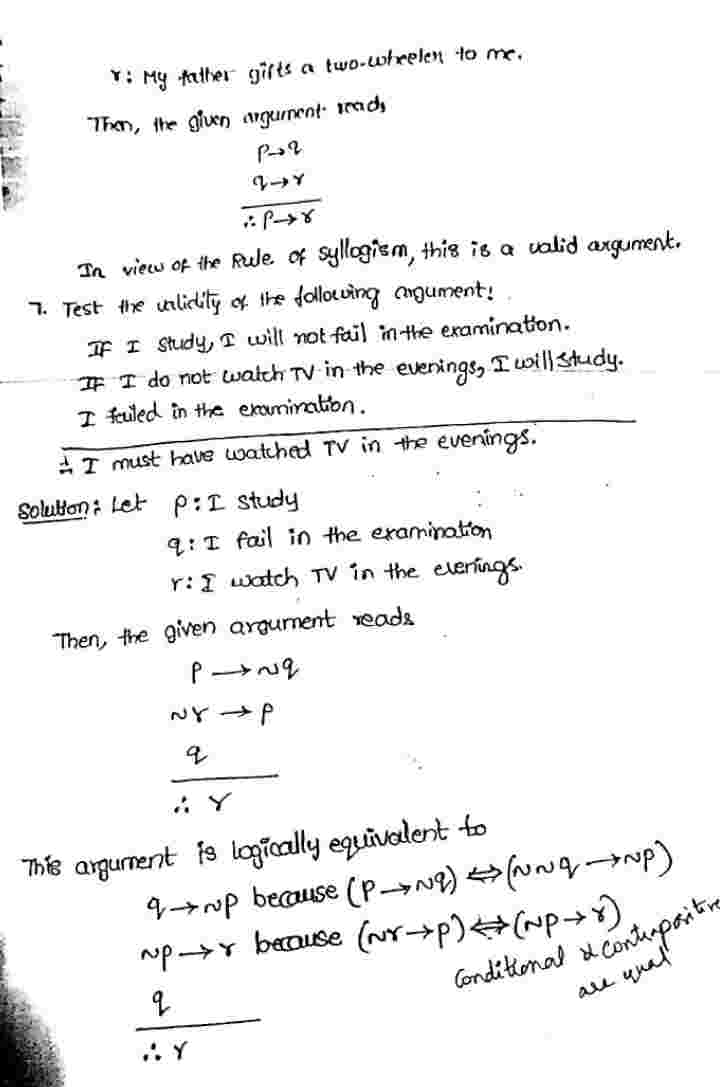 r: My father gifts a two-wheeler to me.
Then, the given argument reads
p→q
q→r
∴ p→r
In view of the Rule of syllogism, this is a valid argument.
7. Test the validity of the following argument:
If I study, I will not fail in the examination.
If I do not watch TV in the evenings, I will study.
I failed in the examination.
∴ I must have watched TV in the evenings.
Solution: Let p: I study
q: I fail in the examination
r: I watch TV in the evenings.
Then, the given argument reads
p → ~q
~r → p
q
∴ r
This argument is logically equivalent to
q → ~p because (p → ~q) ⇔ (~~q → ~p)
~p → r because (~r → p) ⇔ (~p → r)
Conditional & contrapositive
are equal
q
∴ r